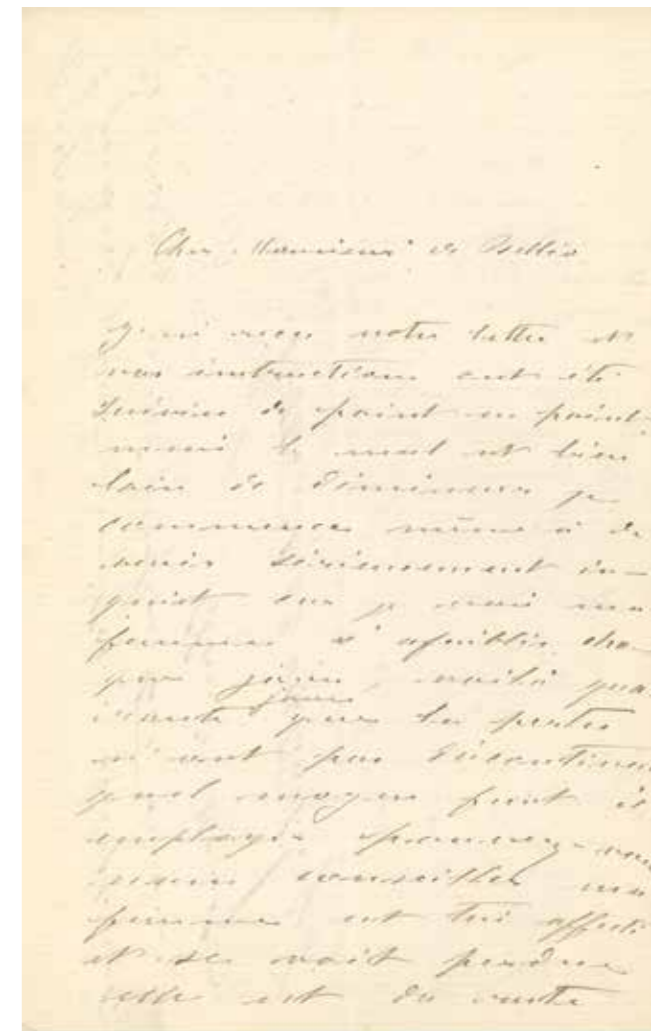 Cher Monsieur de Bellio
J'ai reçu votre lettre et
vos instructions ont été
suivies de point en point
mais le mal est bien
loin de diminuer je
commence même à de
venir sérieusement in-
quiet car je vois ma
femme s'afaiblir cha-
que jour, voilà qua-
rante jours que les pertes
n'ont pas discontinué
quel moyen faut il
employer pouvez-vous
nous conseiller ma
femme est très affectée
et se voit perdue
elle est du reste